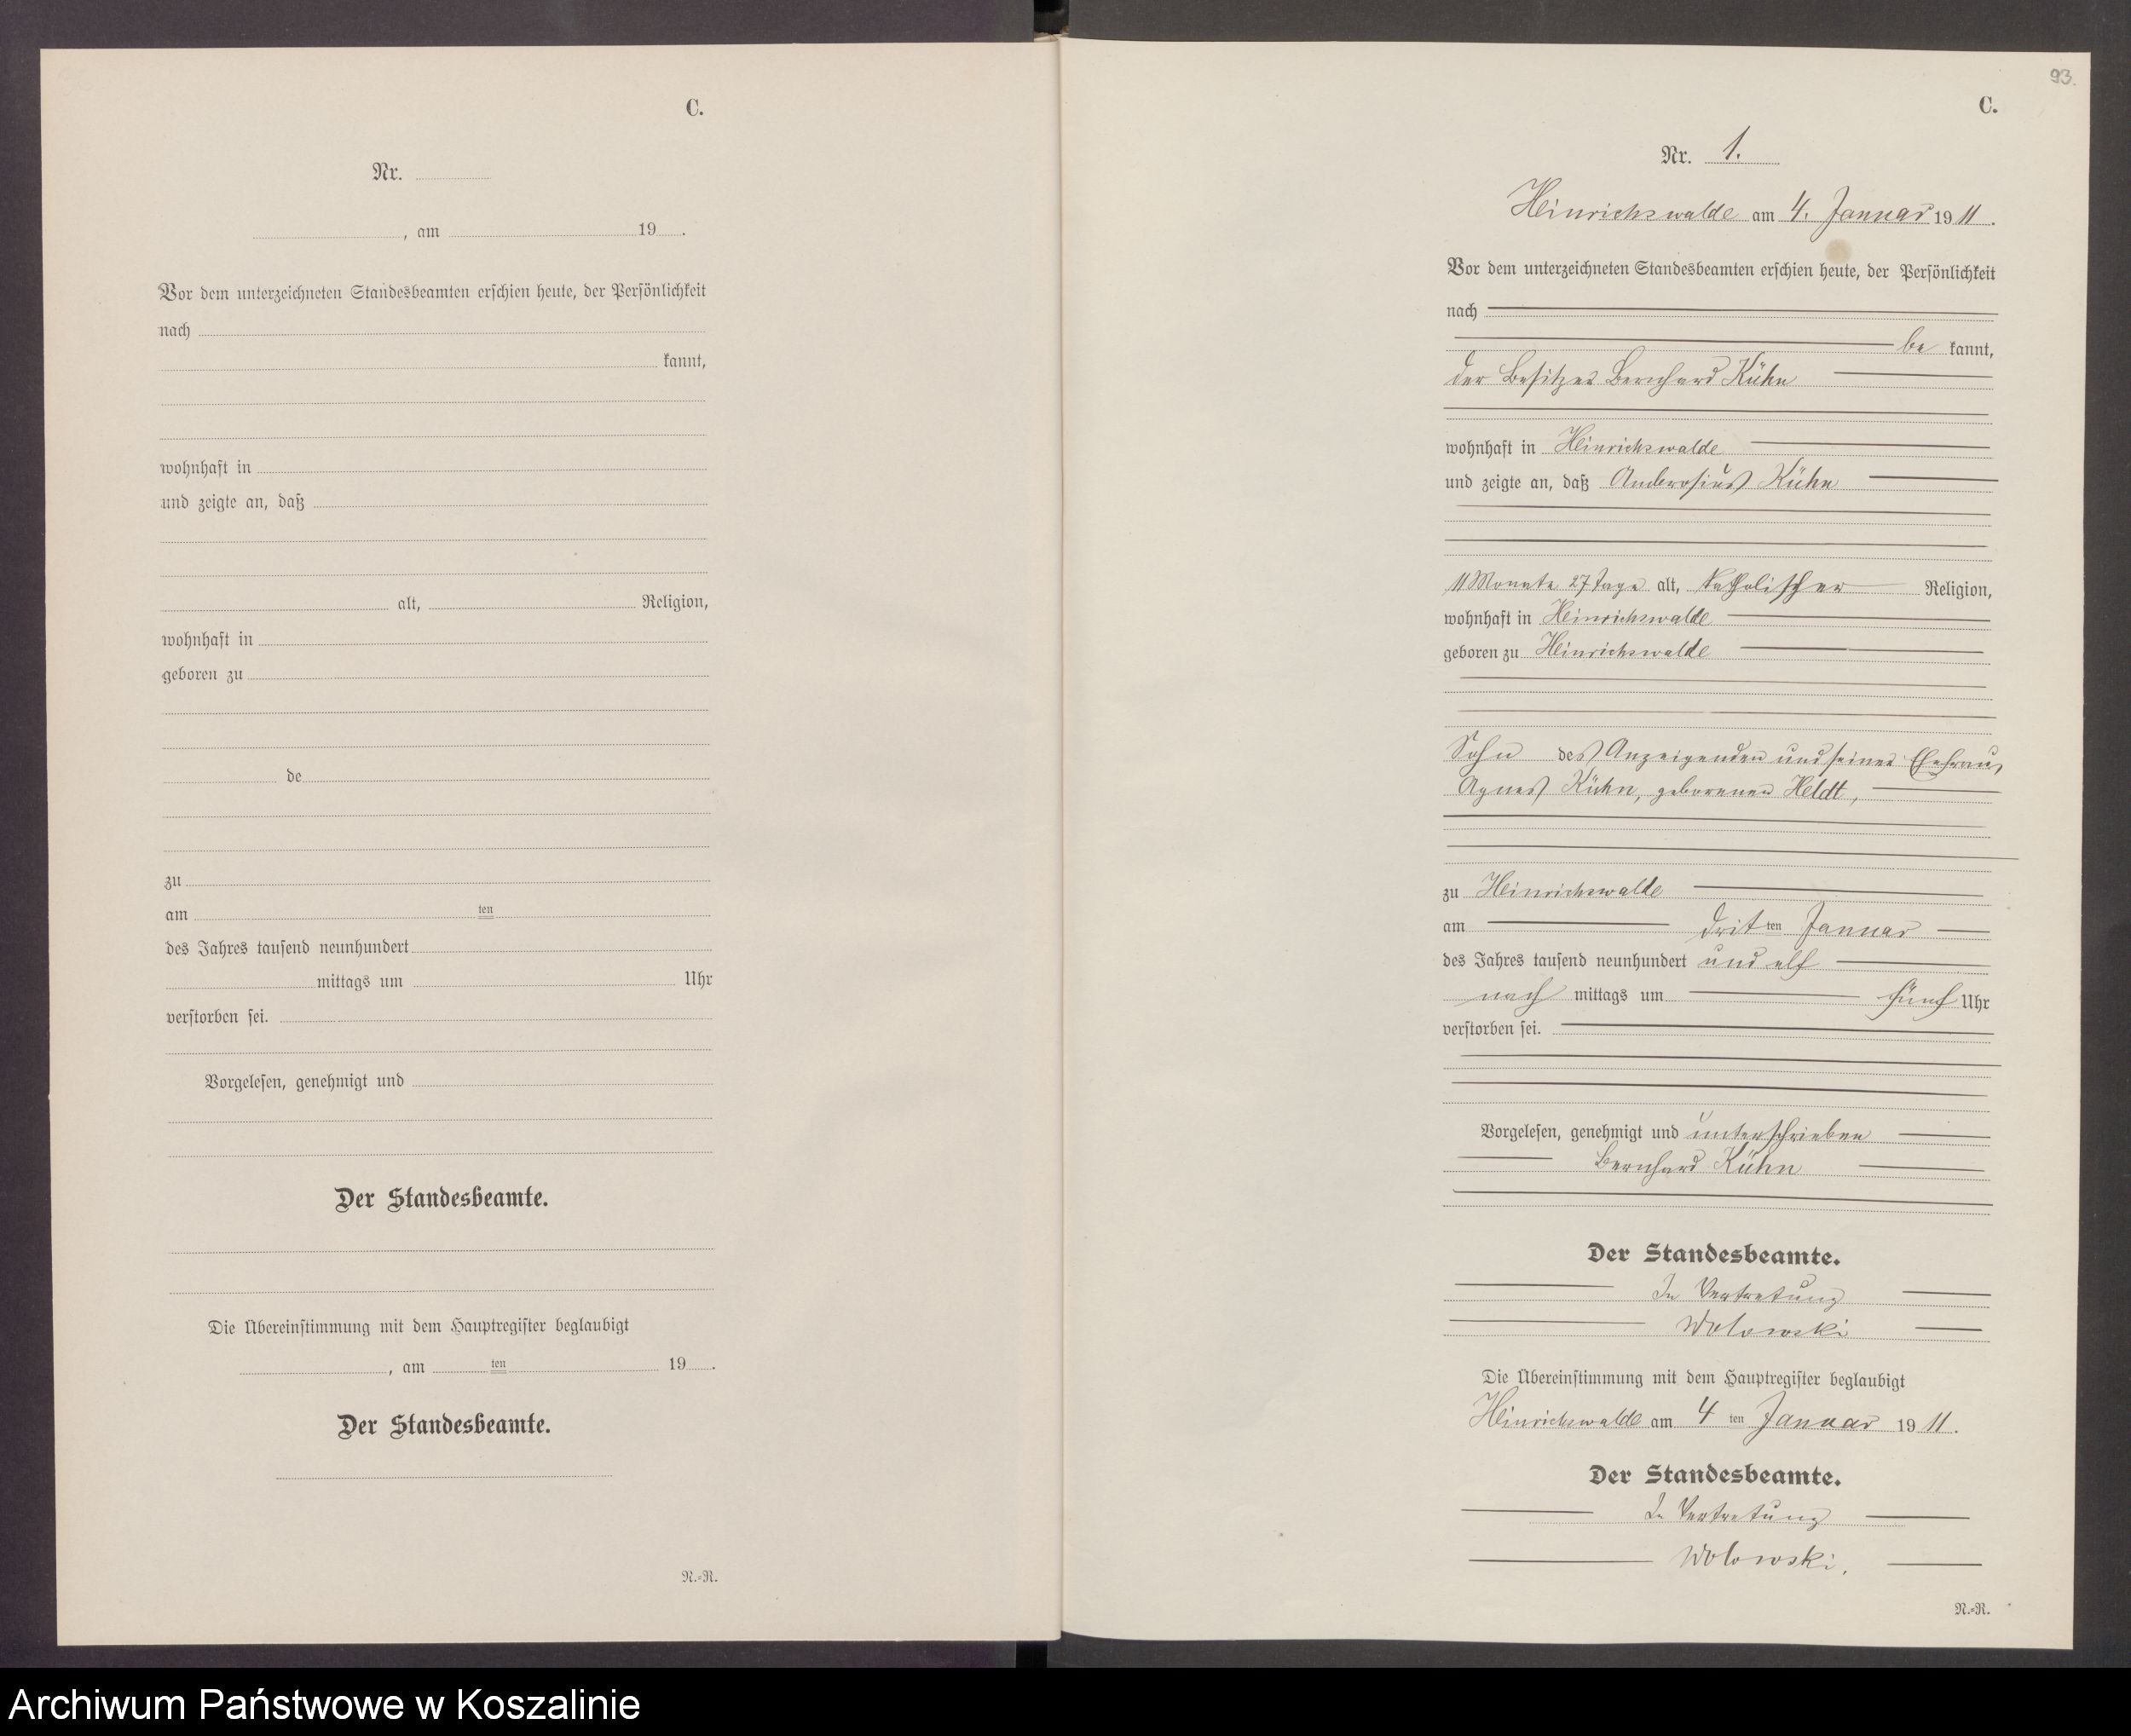 C.
Nr.
, am 19 .
Vor dem unterzeichneten Standesbeamten erschien heute, der Persönlichkeit
nach
kannt,
wohnhaft in
und zeigte an, daß
alt, Religion,
wohnhaft in
geboren zu
de
zu
am ten
des Jahres tausend neunhundert
mittags um Uhr
verstorben sei.
Vorgelesen, genehmigt und
Der Standesbeamte.
Die Übereinstimmung mit dem Hauptregister beglaubigt
, am ten 19 .
Der Standesbeamte.
N.=R.
93.
C.
Nr. 1.
Heinrichswalde am 4. Januar 1911.
Vor dem unterzeichneten Standesbeamten erschien heute, der Persönlichkeit
nach
be kannt,
der Besitzer Bernhard Kühn
wohnhaft in Heinrichswalde
und zeigte an, daß Ambrosius Kühn
11 Monate 27 Tage alt, katholischer Religion,
wohnhaft in Heinrichswalde
geboren zu Heinrichswalde
Sohn des Anzeigenden und seiner Ehefrau,
Agnes Kühn, geborenen Heldt,
zu Heinrichswalde
am dritten Januar
des Jahres tausend neunhundert und elf
nach mittags um fünf Uhr
verstorben sei.
Vorgelesen, genehmigt und unterschrieben
Bernhard Kühn
Der Standesbeamte.
In Vertretung
Wolowski
Die Übereinstimmung mit dem Hauptregister beglaubigt
Heinrichswalde am 4 ten Januar 1911.
Der Standesbeamte.
In Vertretung
Wolowski.
N.=R.
Archiwum Państwowe w Koszalinie